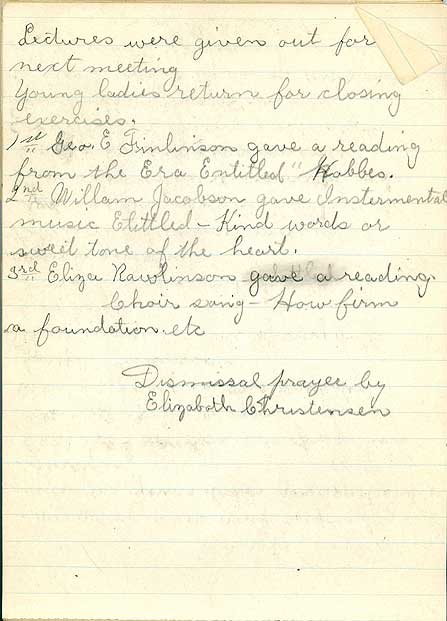 Lectures were given out for
next meeting
Young ladies return for closing
exercises.
1st Geo. E Timlinson gave a reading
from the Era Entitled " Habbes.
2nd Willam Jacobson gave Instermental
music Elittled - Kind words or
sweet tone of the heart.
3rd Eliza Rawlinson gave a reading.
Choir sang - How firm
a foundation. etc
Dismissal prayer by
Elizabath Christensen